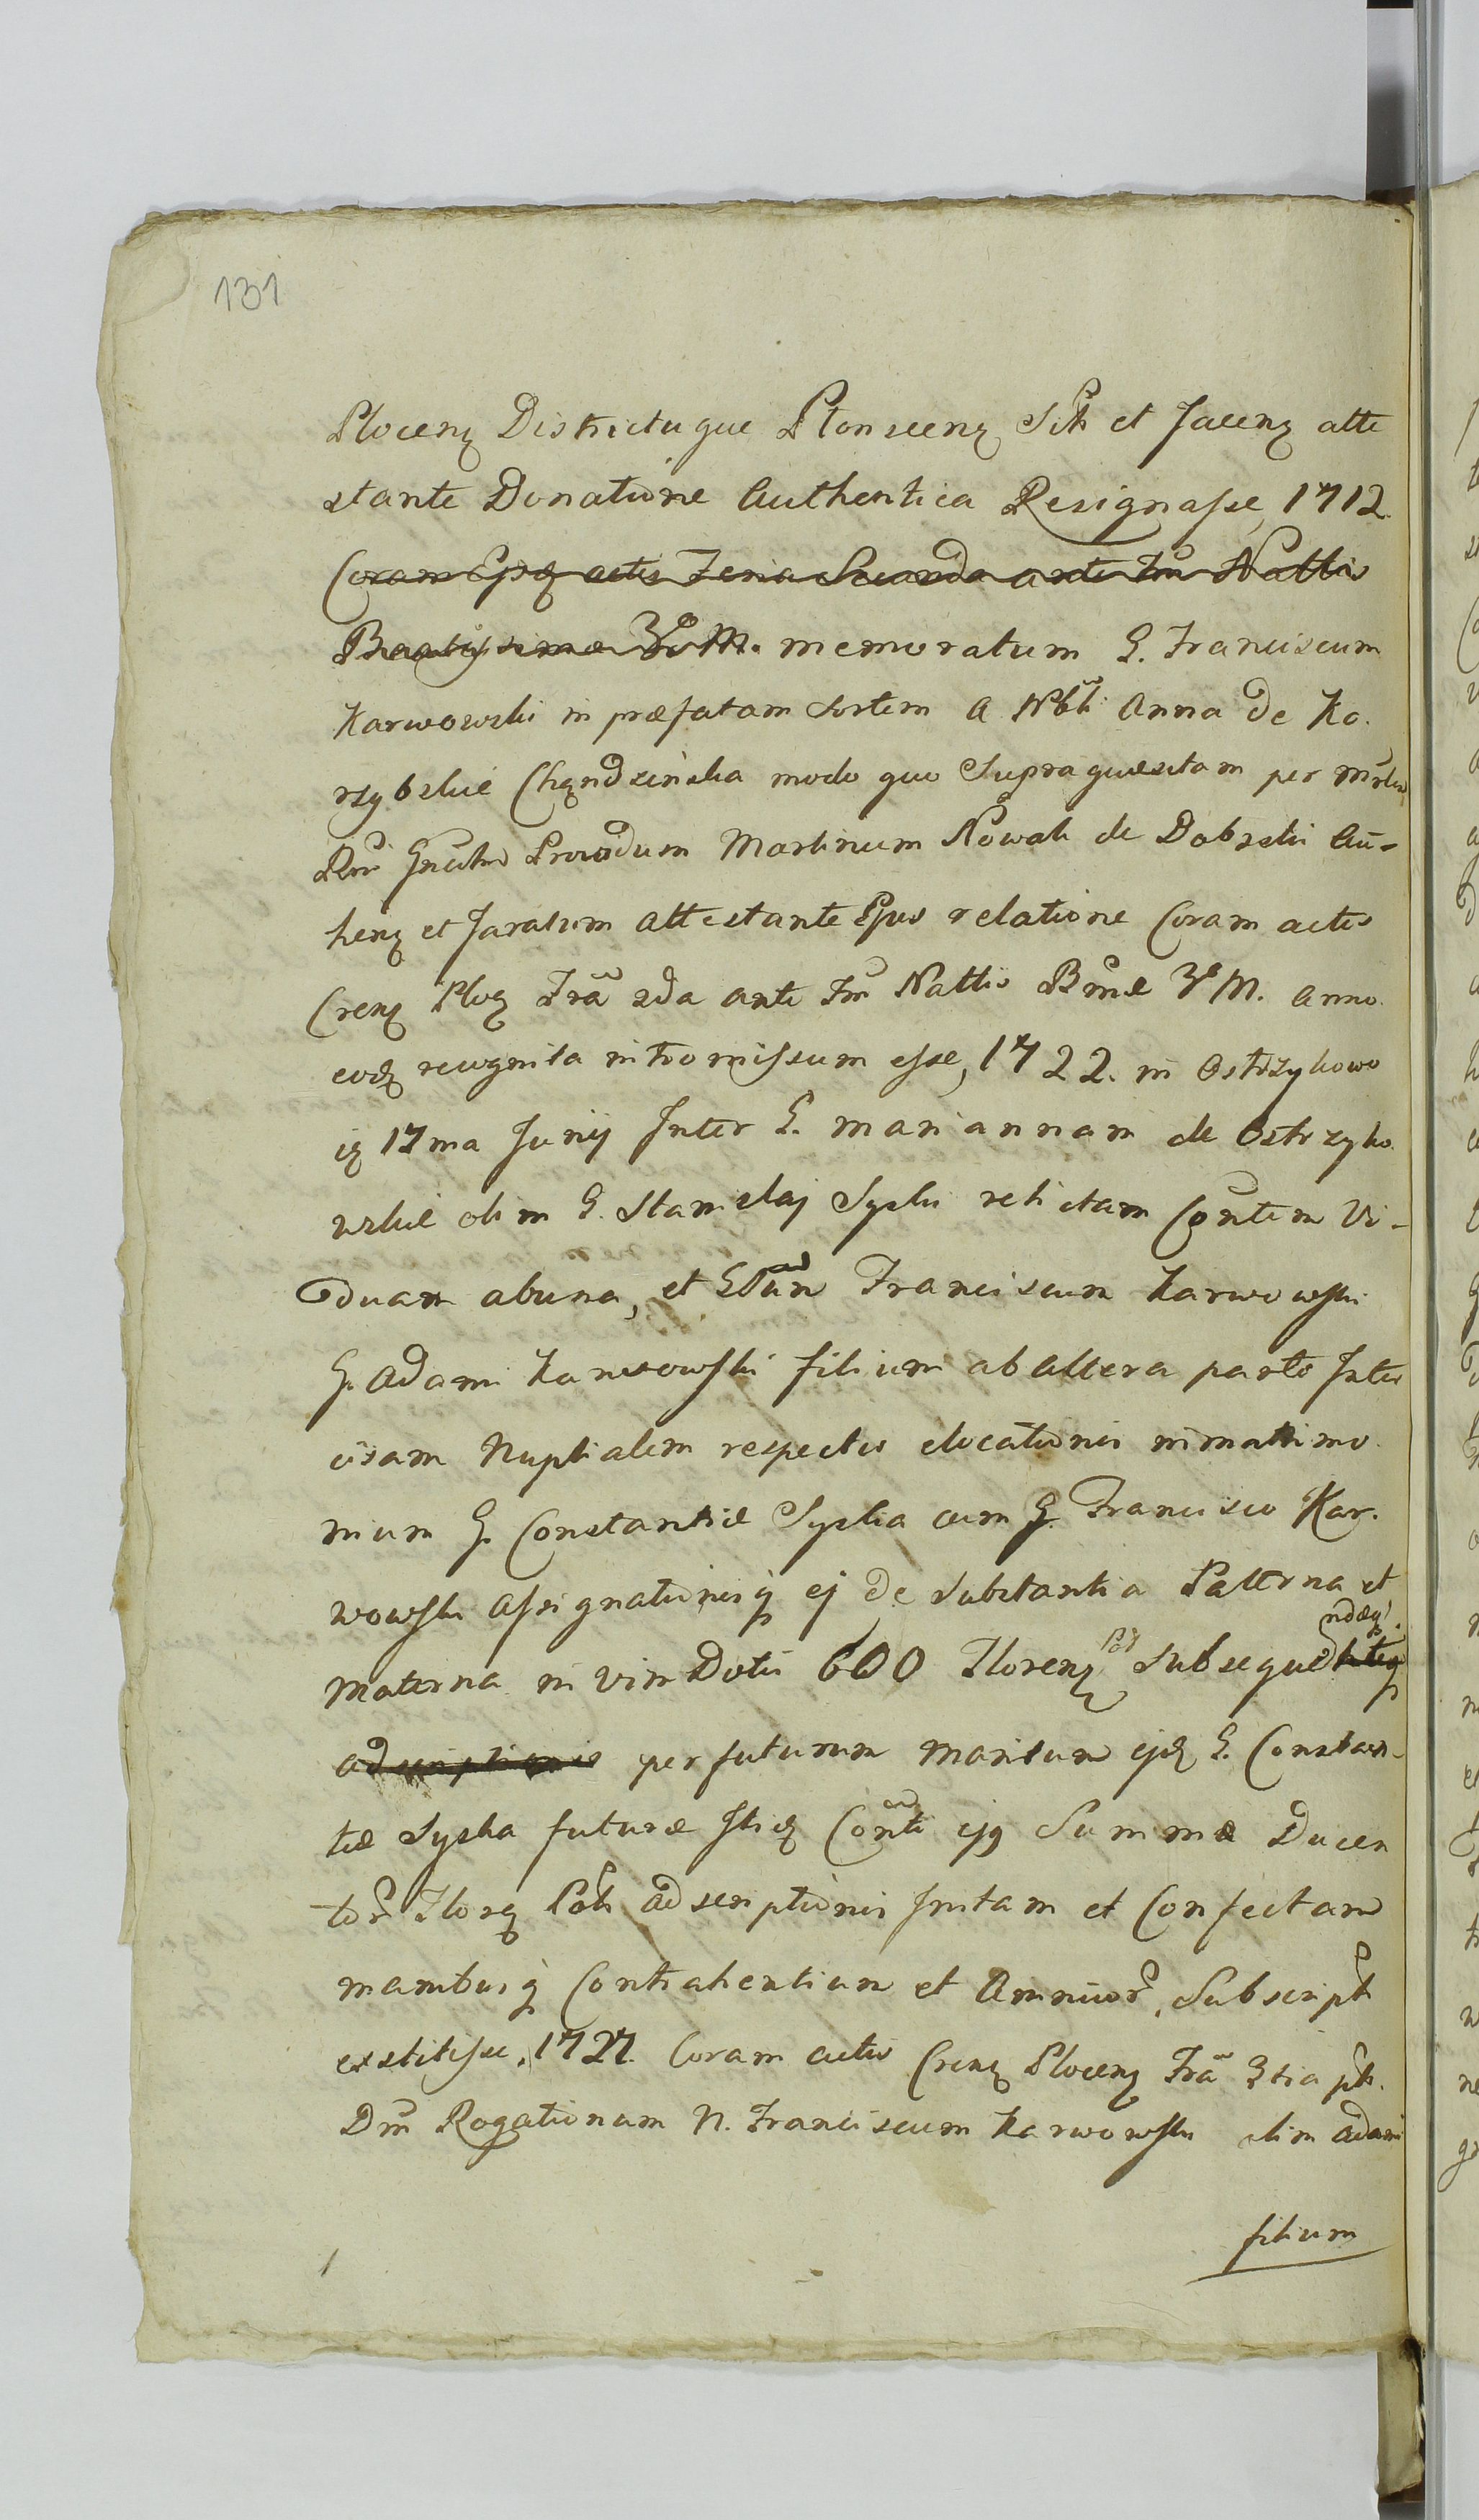 131
Plocen Districtuque Plonscen Sit et Jacen atte
stante Donatione Authentica Resignasse, 1712.
Coram Eisd actis Feria Secunda ante Fm Nattis
Beatissimae V. M. memoratum G. Franciscum
Karwowski in praefatam Sortem a Nbli Anna de Ko.
rzybskie Chądzeńska modo quo Supra quaesitam per
Providum Martinum Nowak de Dobrski Au-
then et Juratum attestante Ejus relatione Coram actis
Cren Ploc Fria 2da ante Fm Nattis Bmae V M. anno
eod recognita intromissum esse, 1722. in Ostrzykowo
17ma Junij Inter G. Mariannam de Ostrzyko
wskie olim G. Stanislaj Syski relictam Contem Vi-
duam ab una, et Franciscum Karwowski
G. Adami Karwowski filium ab altera parte Inter
cisam Nuptialem respectu elocationis in matrimo
nium G. Constantiae Syska cum G. Francisco Kar.
wowski assignationisq ej de Substantia Paterna et
materna in vim Dotis 600 Floren Pol Subseque ndaeq
adscriptionis per futurum maritum ejd G. Constan-
tiae Syska futurae Conti ejq Summae Ducen
tor Flor Pol adscriptionis Initam et Confectam
manibusq Contrahentium et Amicor. Subscript
exstitisse. 1727. Coram actis Cren Plocen Fria 3tia pt.
Dm Rogationum N. Franciscum Karwowski olim Adami
filium